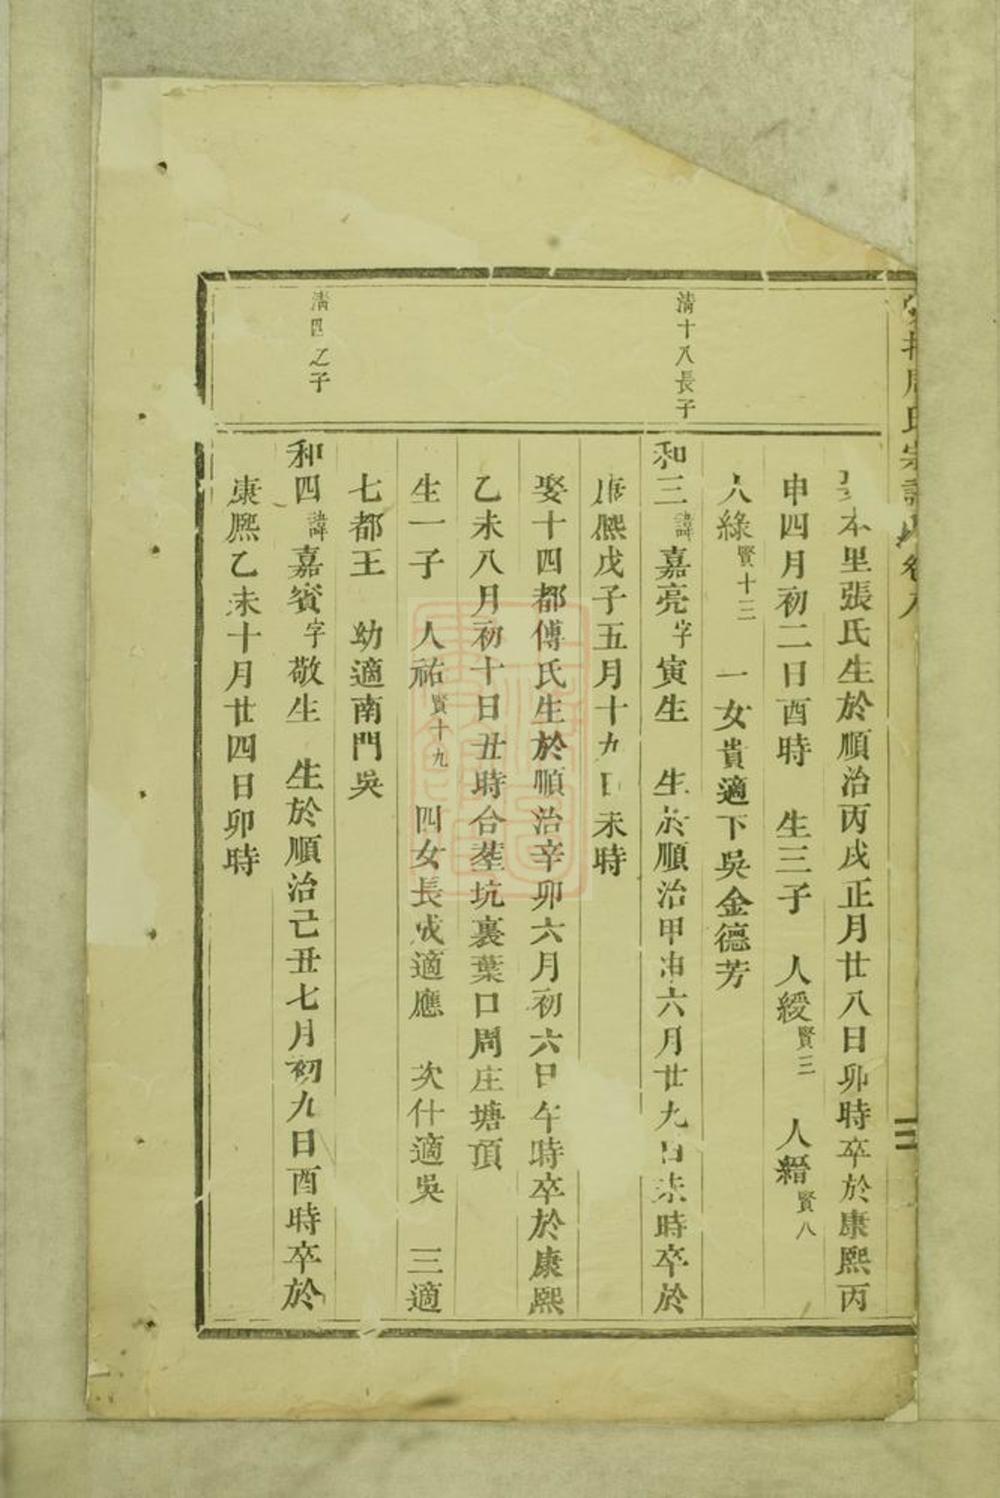 周氏宗譜 卷八
娶本里張氏生於順治丙戌正月廿八日卯時卒於康熙丙
申四月初二日酉時 生三子 人綬賢三 人縉賢八
人綠賢十三 一女貴適下吳金德芳
清十八長子
和三諱嘉亮字寅生 生於順治甲申六月廿九日未時卒於
康熙戊子五月十九日未時
娶十四都傅氏生於順治辛卯六月初六日午時卒於康熙
乙未八月初十日丑時合塟坑裏葉口周庄塘頂
生一子 人祐賢十九 四女長成適應 次什適吳 三適
七都王 幼適南門吳
清四之子
和四諱嘉賓字敬生 生於順治己丑七月初九日酉時卒於
康熙乙未十月廿四日卯時